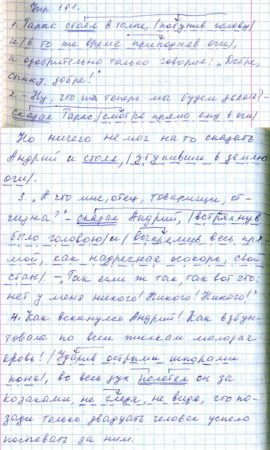 Упр 101.
1. Тарас стоял в толпе, |потупив голову|
и |в то же время приподняв очи|,
и одобрительно только говорил: „Добре,
сынку, добре!"
2. - Ну, что ж теперь мы будем делать? -
сказал Тарас, |смотря прямо ему в очи|
Но ничего не мог на то сказать
Андрий и стоял, |утупивши в землю
очи|.
3. „А что мне, отец, товарищи, от-
чизна?" - сказал Андрий, |встряхнув
быстро головою| и |выпрямив весь пря-
мой, как надречная осокорь, свой
стан| - „Так если ж так, так вот что:
нет у меня никого! Никого! Никого!"
4. Как вскинулся Андрий! Как взбун-
товала по всем жилкам молодая
кровь! |Ударив острыми шпорами
коня|, во весь дух полетел он за
козаками, не глядя, не видя, что по-
зади только двадцать человек успело
поспевать за ним.